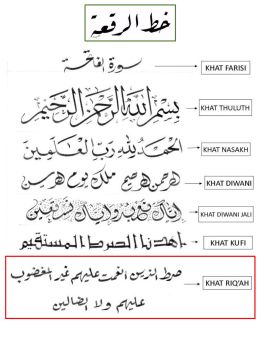 خط الرقعة
سورة الفاتحة
KHAT FARISI
بسم الله الرحمن الرحيم
KHAT THULUTH
الحمد لله رب العالمين
KHAT NASAKH
الرحمن الرحيم ملك يوم الدين
KHAT DIWANI
إياك نعبد وإياك نستعين
KHAT DIWANI JALI
اهدنا الصرط المستقيم
KHAT KUFI
صرط الذين انعمت عليهم غير المغضوب
عليهم ولا الضالين
KHAT RIQ'AH